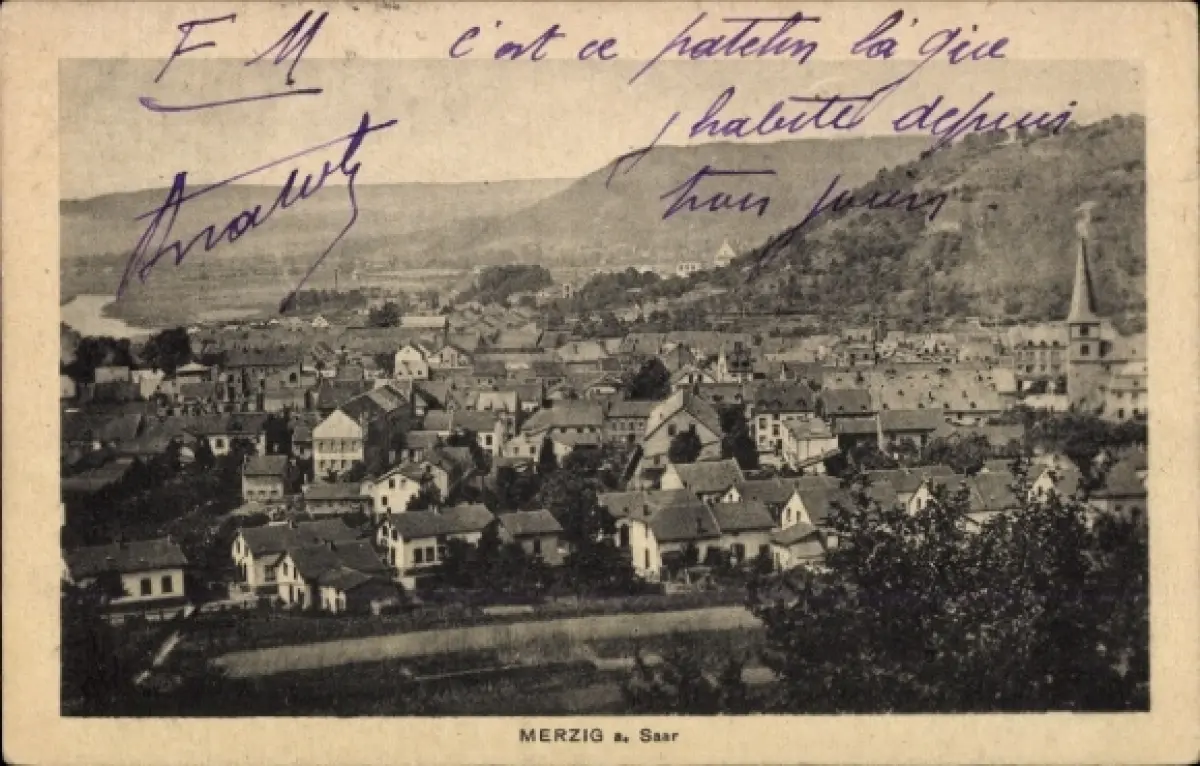 F M
c'est ce patelin là que
j'habite depuis
trois jours
MERZIG a. Saar